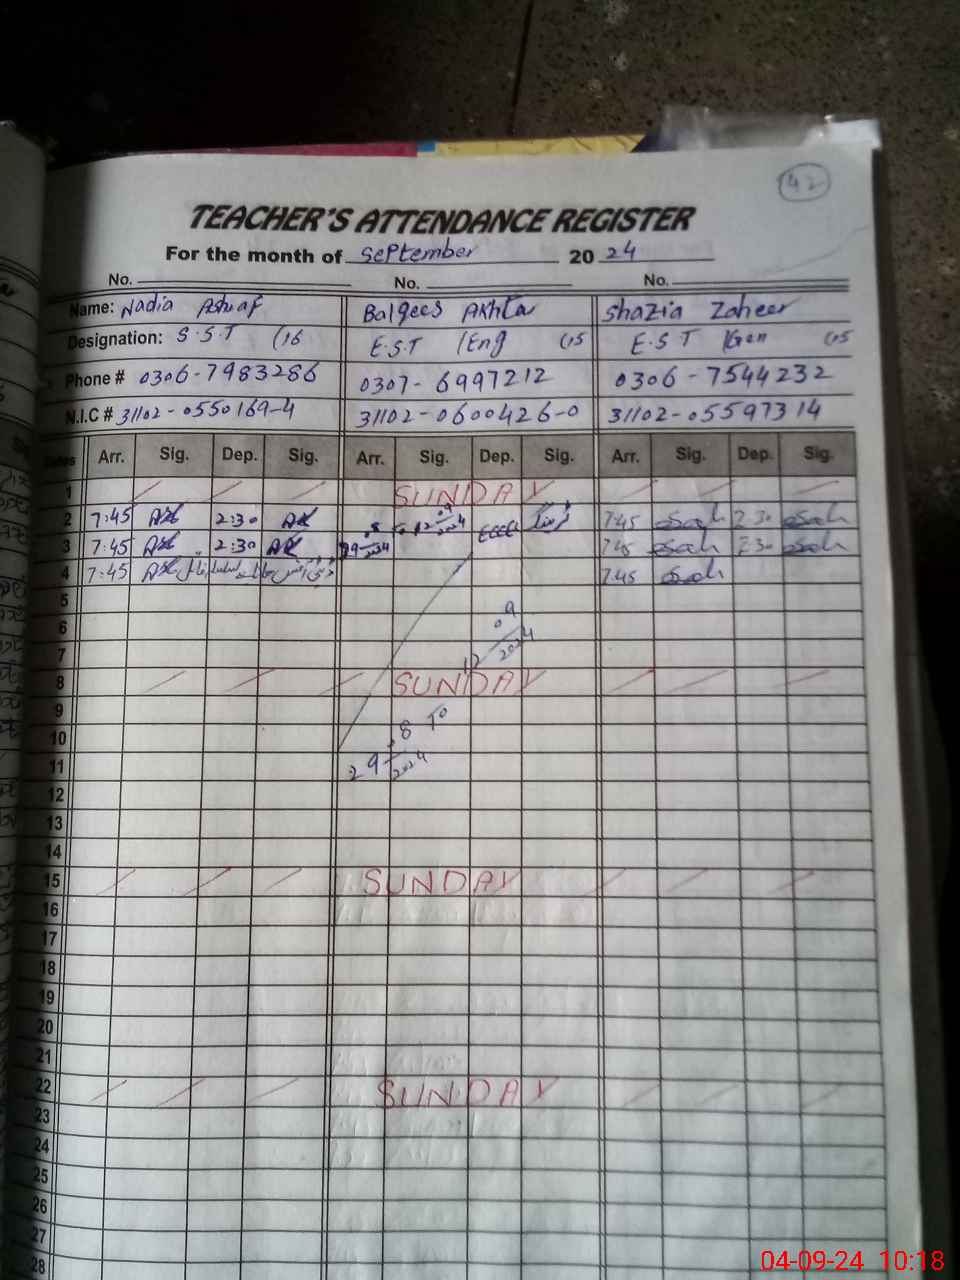 42
TEACHER'S ATTENDANCE REGISTER
For the month of September 2024
No. No. No.
Name: Nadia Ashraf Balqees Akhtar Shazia Zaheer
Designation: S.S.T (16 E.S.T (Eng (15 E.S.T (Gen (15
Phone # 0306-7983286 0307-6997212 0306-7544232
N.I.C # 31102-0550169-4 31102-0600426-0 31102-0559731 4
Dates Arr. Sig. Dep. Sig. Arr. Sig. Dep. Sig. Arr. Sig. Dep. Sig.
1 SUNDAY
2 7:45 2:30 7:45 2:30
3 7:45 2:30 7:45 2:30
4 7:45 7:45
5
6
7
8 SUNDAY
9
10
11
12
13
14
15 SUNDAY
16
17
18
19
20
21
22 SUNDAY
23
24
25
26
27
28
04-09-24 10:18